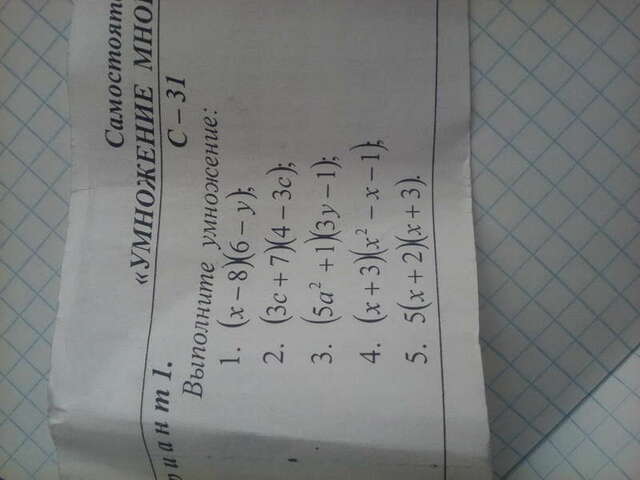 Самостоят
«УМНОЖЕНИЕ МНОГ
С – 31
риант 1.
Выполните умножение:
1. (x – 8)(6 – y);
2. (3c + 7)(4 – 3c);
3. (5a² + 1)(3y – 1);
4. (x + 3)(x² – x – 1);
5. 5(x + 2)(x + 3).